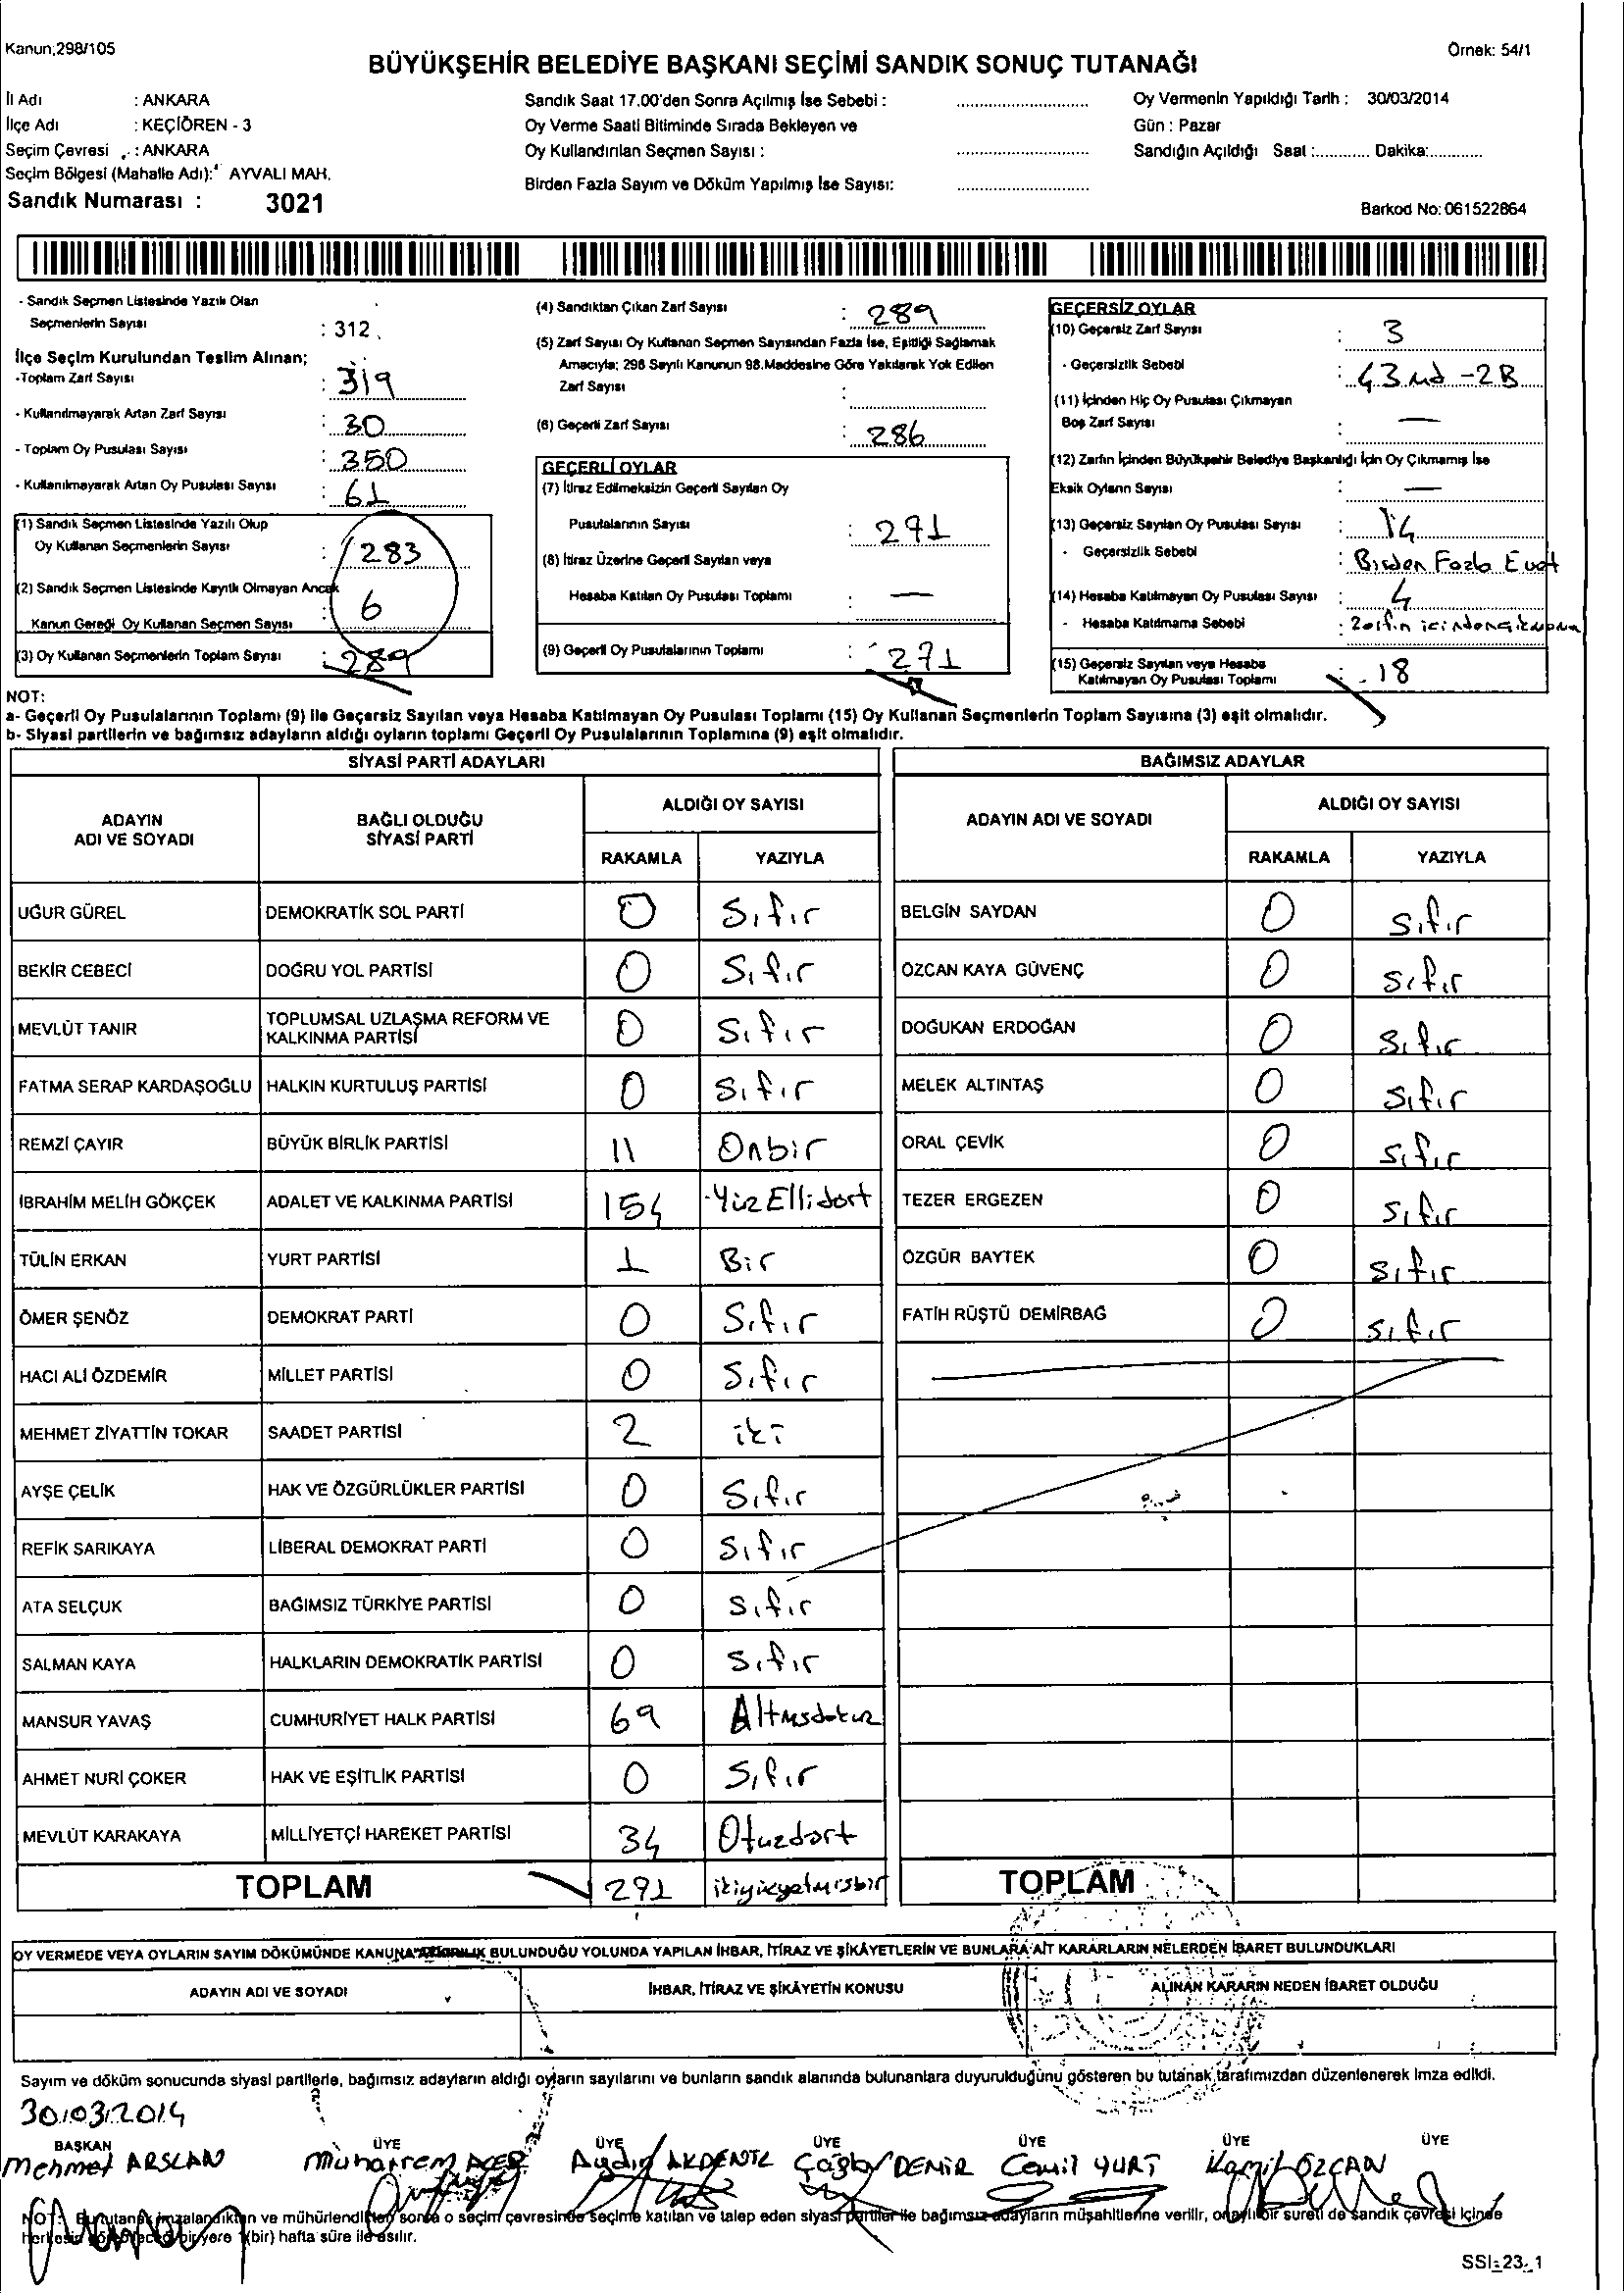 Kanun;298/105
Örnek: 54/1
BÜYÜKŞEHİR BELEDİYE BAŞKANI SEÇİMİ SANDIK SONUÇ TUTANAĞI
İl Adı : ANKARA
İlçe Adı : KEÇİÖREN - 3
Seçim Çevresi : ANKARA
Seçim Bölgesi (Mahalle Adı): AYVALI MAH.
Sandık Numarası : 3021
Sandık Saat 17.00'den Sonra Açılmış İse Sebebi :
Oy Verme Saati Bitiminde Sırada Bekleyen ve
Oy Kullandırılan Seçmen Sayısı :
Birden Fazla Sayım ve Döküm Yapılmış İse Sayısı:
Oy Vermenin Yapıldığı Tarih : 30/03/2014
Gün : Pazar
Sandığın Açıldığı Saat :............ Dakika:............
Barkod No: 061522864
- Sandık Seçmen Listesinde Yazılı Olan
Seçmenlerin Sayısı : 312
İlçe Seçim Kurulundan Teslim Alınan;
-Toplam Zarf Sayısı : 319
- Kullanılmayarak Artan Zarf Sayısı : 30
- Toplam Oy Pusulası Sayısı : 350
- Kullanılmayarak Artan Oy Pusulası Sayısı : 61
(1) Sandık Seçmen Listesinde Yazılı Olup
Oy Kullanan Seçmenlerin Sayısı : 283
(2) Sandık Seçmen Listesinde Kayıtlı Olmayan Ancak
Kanun Gereği Oy Kullanan Seçmen Sayısı : 6
(3) Oy Kullanan Seçmenlerin Toplam Sayısı : 289
(4) Sandıktan Çıkan Zarf Sayısı : 289
(5) Zarf Sayısı Oy Kullanan Seçmen Sayısından Fazla İse, Eşitliği Sağlamak
Amacıyla; 298 Sayılı Kanunun 98.Maddesine Göre Yakılarak Yok Edilen
Zarf Sayısı :
(6) Geçerli Zarf Sayısı : 286
GEÇERLİ OYLAR
(7) İtiraz Edilmeksizin Geçerli Sayılan Oy
Pusulalarının Sayısı : 271
(8) İtiraz Üzerine Geçerli Sayılan veya
Hesaba Katılan Oy Pusulası Toplamı : —
(9) Geçerli Oy Pusulalarının Toplamı : 271
GEÇERSİZ OYLAR
(10) Geçersiz Zarf Sayısı : 3
- Geçersizlik Sebebi : 43 md -2B
(11) İçinden Hiç Oy Pusulası Çıkmayan
Boş Zarf Sayısı : —
(12) Zarfın İçinden Büyükşehir Belediye Başkanlığı İçin Oy Çıkmamış İse
Eksik Oyların Sayısı : —
(13) Geçersiz Sayılan Oy Pusulası Sayısı : 14
- Geçersizlik Sebebi : Birden Fazla Evet
(14) Hesaba Katılmayan Oy Pusulası Sayısı : 4
- Hesaba Katılmama Sebebi : Zarfın içinden
(15) Geçersiz Sayılan veya Hesaba
Katılmayan Oy Pusulası Toplamı : 18
NOT:
a- Geçerli Oy Pusulalarının Toplamı (9) ile Geçersiz Sayılan veya Hesaba Katılmayan Oy Pusulası Toplamı (15) Oy Kullanan Seçmenlerin Toplam Sayısına (3) eşit olmalıdır.
b- Siyasi partilerin ve bağımsız adayların aldığı oyların toplamı Geçerli Oy Pusulalarının Toplamına (9) eşit olmalıdır.
SİYASİ PARTİ ADAYLARI
ADAYIN ADI VE SOYADI BAĞLI OLDUĞU SİYASİ PARTİ ALDIĞI OY SAYISI
RAKAMLA YAZIYLA
UĞUR GÜREL DEMOKRATİK SOL PARTİ 0 Sıfır
BEKİR CEBECİ DOĞRU YOL PARTİSİ 0 Sıfır
MEVLÜT TANIR TOPLUMSAL UZLAŞMA REFORM VE KALKINMA PARTİSİ 0 Sıfır
FATMA SERAP KARDAŞOĞLU HALKIN KURTULUŞ PARTİSİ 0 Sıfır
REMZİ ÇAYIR BÜYÜK BİRLİK PARTİSİ 11 Onbir
İBRAHİM MELİH GÖKÇEK ADALET VE KALKINMA PARTİSİ 154 YüzEllidört
TÜLİN ERKAN YURT PARTİSİ 1 Bir
ÖMER ŞENÖZ DEMOKRAT PARTİ 0 Sıfır
HACI ALİ ÖZDEMİR MİLLET PARTİSİ 0 Sıfır
MEHMET ZİYATTİN TOKAR SAADET PARTİSİ 2 iki
AYŞE ÇELİK HAK VE ÖZGÜRLÜKLER PARTİSİ 0 Sıfır
REFİK SARIKAYA LİBERAL DEMOKRAT PARTİ 0 Sıfır
ATA SELÇUK BAĞIMSIZ TÜRKİYE PARTİSİ 0 Sıfır
SALMAN KAYA HALKLARIN DEMOKRATİK PARTİSİ 0 Sıfır
MANSUR YAVAŞ CUMHURİYET HALK PARTİSİ 69 Altmışdokuz
AHMET NURİ ÇOKER HAK VE EŞİTLİK PARTİSİ 0 Sıfır
MEVLÜT KARAKAYA MİLLİYETÇİ HAREKET PARTİSİ 34 Otuzdört
TOPLAM 271 ikiyüzyetmişbir
BAĞIMSIZ ADAYLAR
ADAYIN ADI VE SOYADI ALDIĞI OY SAYISI
RAKAMLA YAZIYLA
BELGİN SAYDAN 0 Sıfır
ÖZCAN KAYA GÜVENÇ 0 Sıfır
DOĞUKAN ERDOĞAN 0 Sıfır
MELEK ALTINTAŞ 0 Sıfır
ORAL ÇEVİK 0 Sıfır
TEZER ERGEZEN 0 Sıfır
ÖZGÜR BAYTEK 0 Sıfır
FATİH RÜŞTÜ DEMİRBAĞ 0 Sıfır
TOPLAM
OY VERMEDE VEYA OYLARIN SAYIM DÖKÜMÜNDE KANUNA AYKIRILIK BULUNDUĞU YOLUNDA YAPILAN İHBAR, İTİRAZ VE ŞİKÂYETLERİN VE BUNLARA AİT KARARLARIN NELERDEN İBARET BULUNDUKLARI
ADAYIN ADI VE SOYADI İHBAR, İTİRAZ VE ŞİKÂYETİN KONUSU ALINAN KARARIN NEDEN İBARET OLDUĞU
Sayım ve döküm sonucunda siyasi partilerle, bağımsız adayların aldığı oyların sayılarını ve bunların sandık alanında bulunanlara duyurulduğunu gösteren bu tutanak tarafımızdan düzenlenerek imza edildi.
30.03.2014
BAŞKAN ÜYE ÜYE ÜYE ÜYE ÜYE ÜYE
Mehmet ARSLAN Muharrem ACER Aydın AKDENİZ Çağlar DEMİR Camil YURT Kamil ÖZCAN
NOT: Bu tutanak imzalandıktan ve mühürlendikten sonra o seçim çevresinde seçime katılan ve talep eden siyasi partiler ile bağımsız adayların müşahitlerine verilir, onaylı bir sureti de sandık çevresi içinde
herkesin görebileceği bir yere 1(bir) hafta süre ile asılır.
SSI_23_1